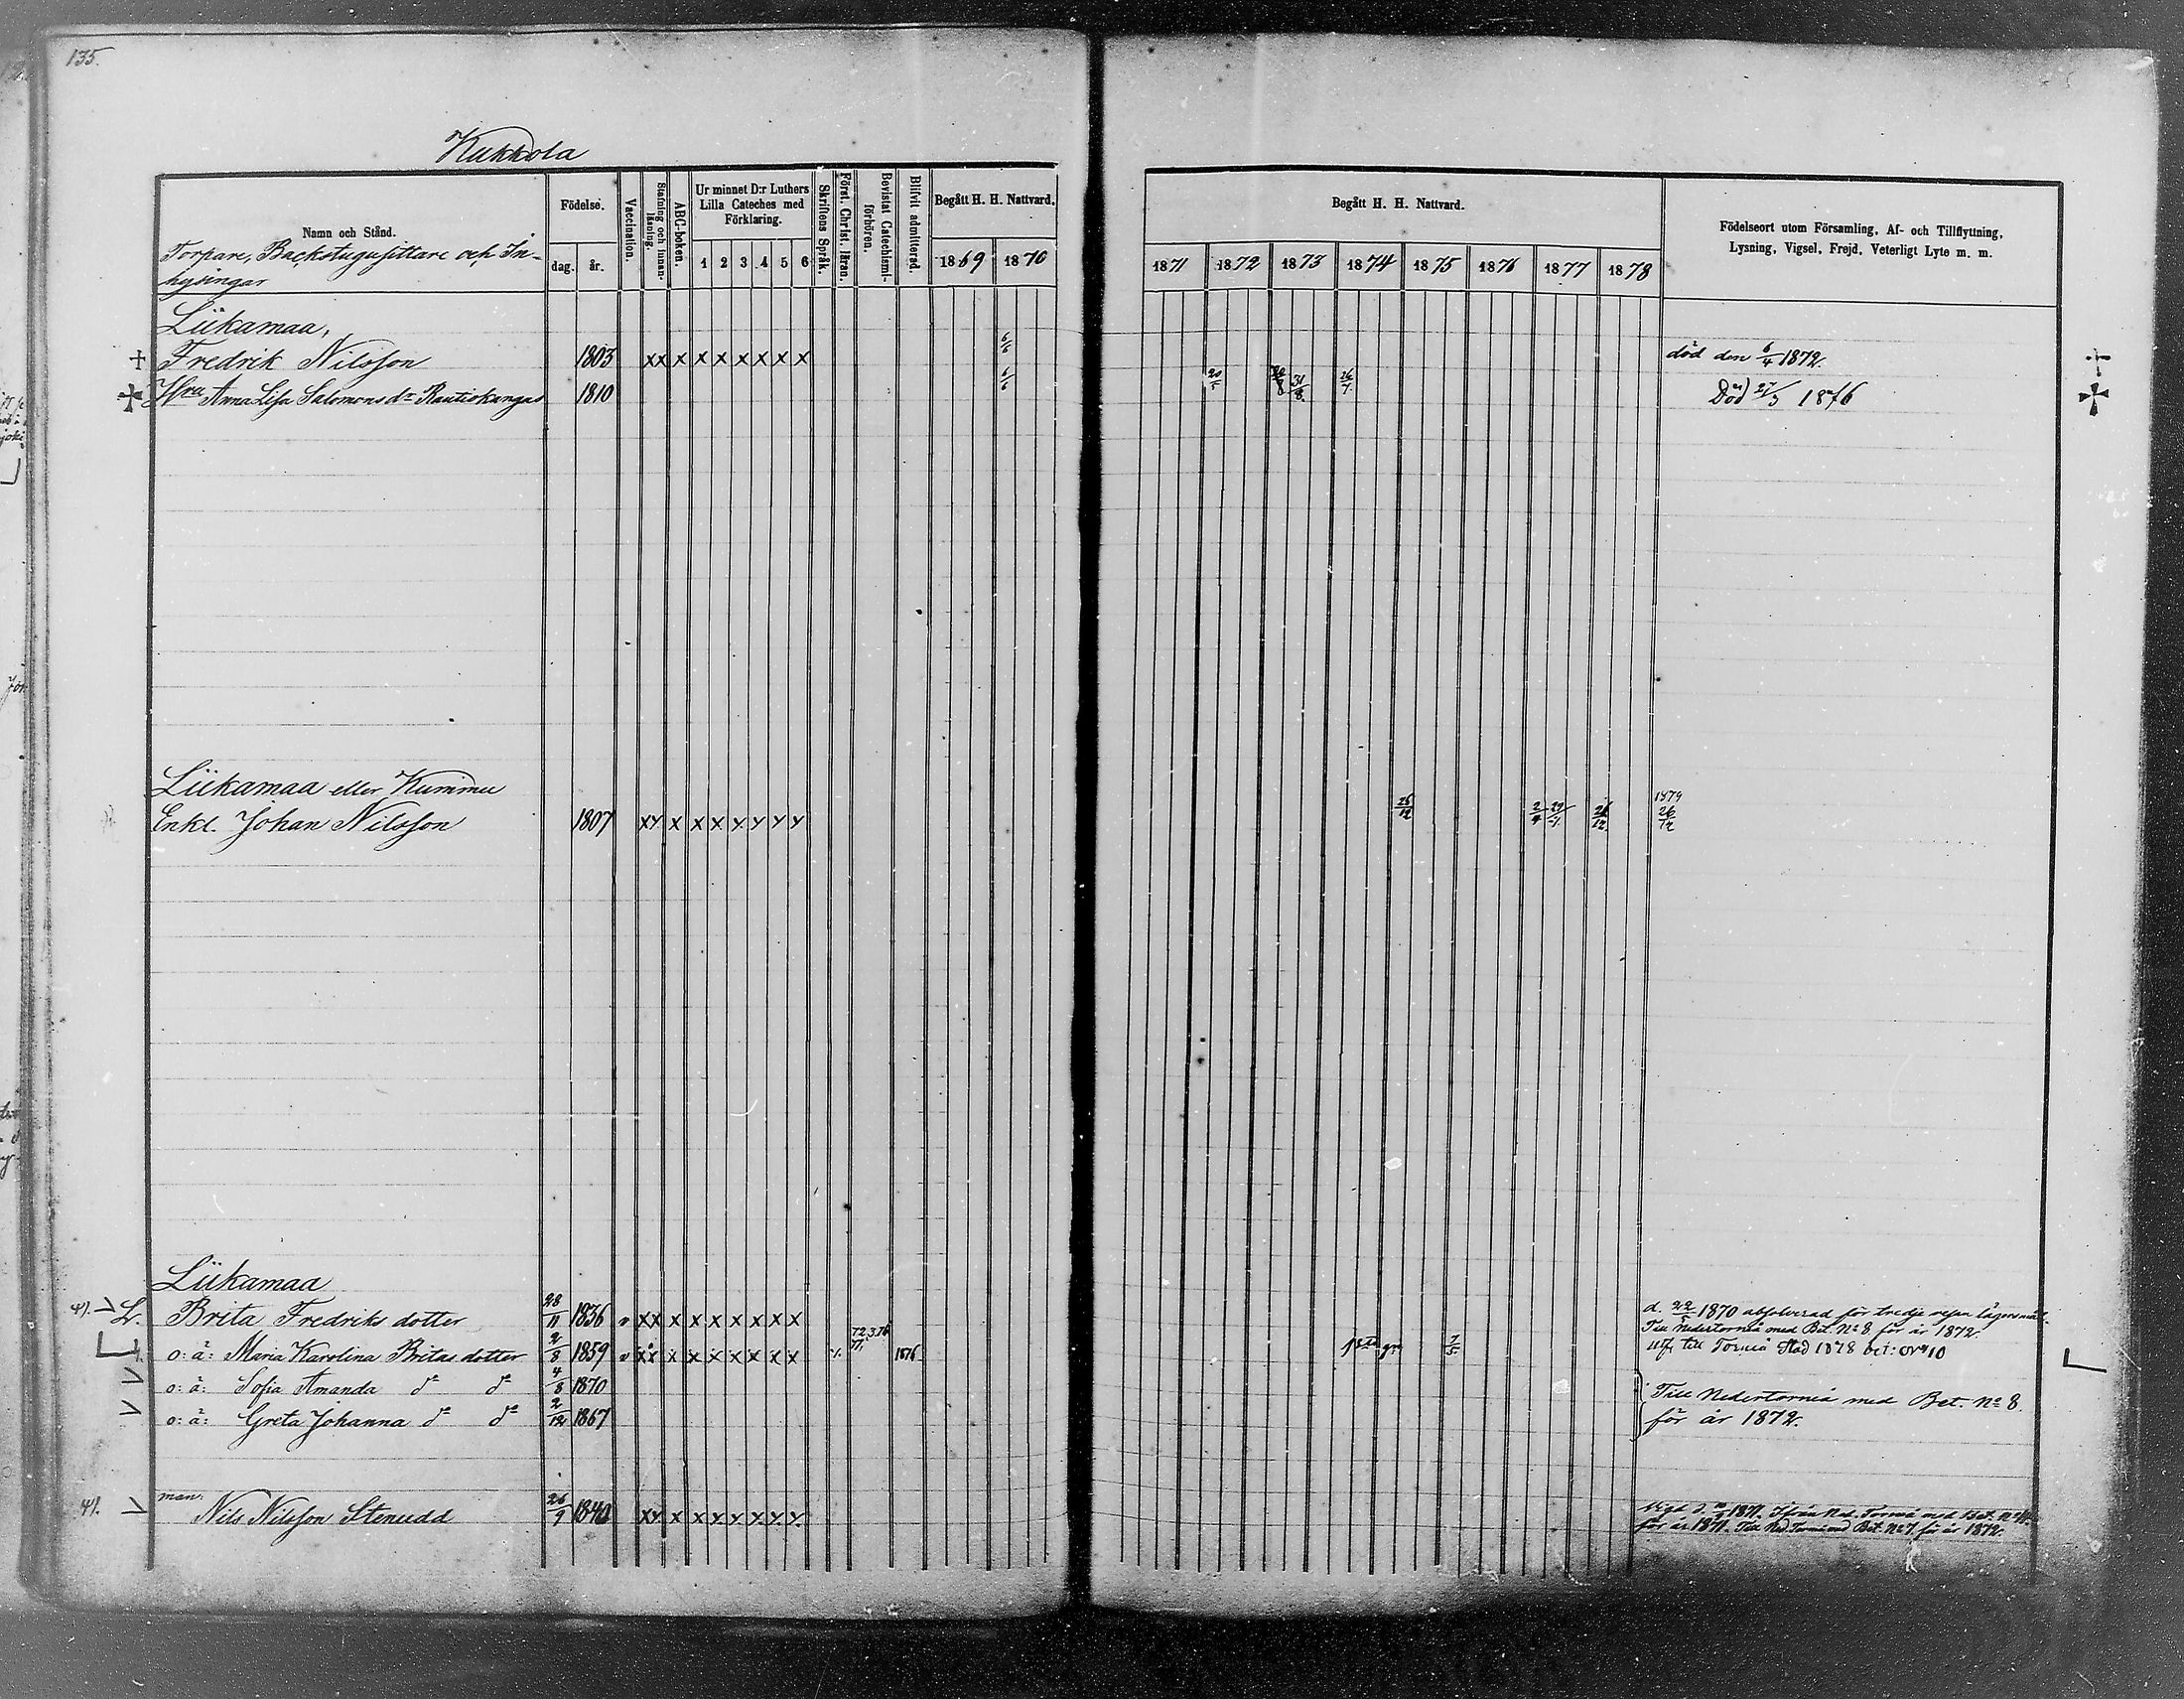 135.
Kukkola
Namn och Stånd.
Torpare, Backstugusittare och In-
hysingar
Födelse.
dag. år.
Vaccination.
Stafning och innan-
läsning.
ABC-boken.
Ur minnet D:r Luthers
Lilla Cateches med
Förklaring.
1 2 3 4 5 6
Skriftens Språk.
Först. Christ. läran.
Bevistat Catechismi-
förhören.
Blifvit admitterad.
Begått H. H. Nattvard.
1869 1870
Begått H. H. Nattvard.
1871 1872 1873 1874 1875 1876 1877 1878
Födelseort utom Församling, Af- och Tillflyttning,
Lysning, Vigsel, Frejd, Veterligt Lyte m. m.
Liikamaa,
Fredrik Nilsson 1803 xx x x x x x x x 6/6 död den 6/4 1872.
Hru Anna Lisa Salomons dr Rautiokangas 1810 6/6 31/8 26/7 Död 27/3 1876
Liikamaa eller Kummu
Enkl. Johan Nilsson 1807 xy x x x y y y y 26/12 26/12 1879 26/12
Liikamaa
41. L. Brita Fredriks dotter 28/11 1836 v xx x x x x x x x d. 22/5 1870 absolverad för tredje resan lägersmål.
Till Nedertorneå med Bet. No 8 för år 1872.
o: ä: Maria Karolina Britas dotter 2/8 1859 v xx x x x x x x x 72.3.76 77. 1876 7/5 utfl. till Torneå Stad 1878 bet: No 10
o: ä: Sofia Amanda do do 4/8 1870
o: ä: Greta Johanna do do 2/12 1867
Till Nedertorneå med Bet. No 8
för år 1872.
man.
41. Nils Nilsson Stenudd 26/9 1840 xy x x y y y y y Vigd d. 1871. Ifrån Ned. Torneå med Bet. No
för år 1871. Till Ned. Torneå med Bet. No 7 för år 1872.